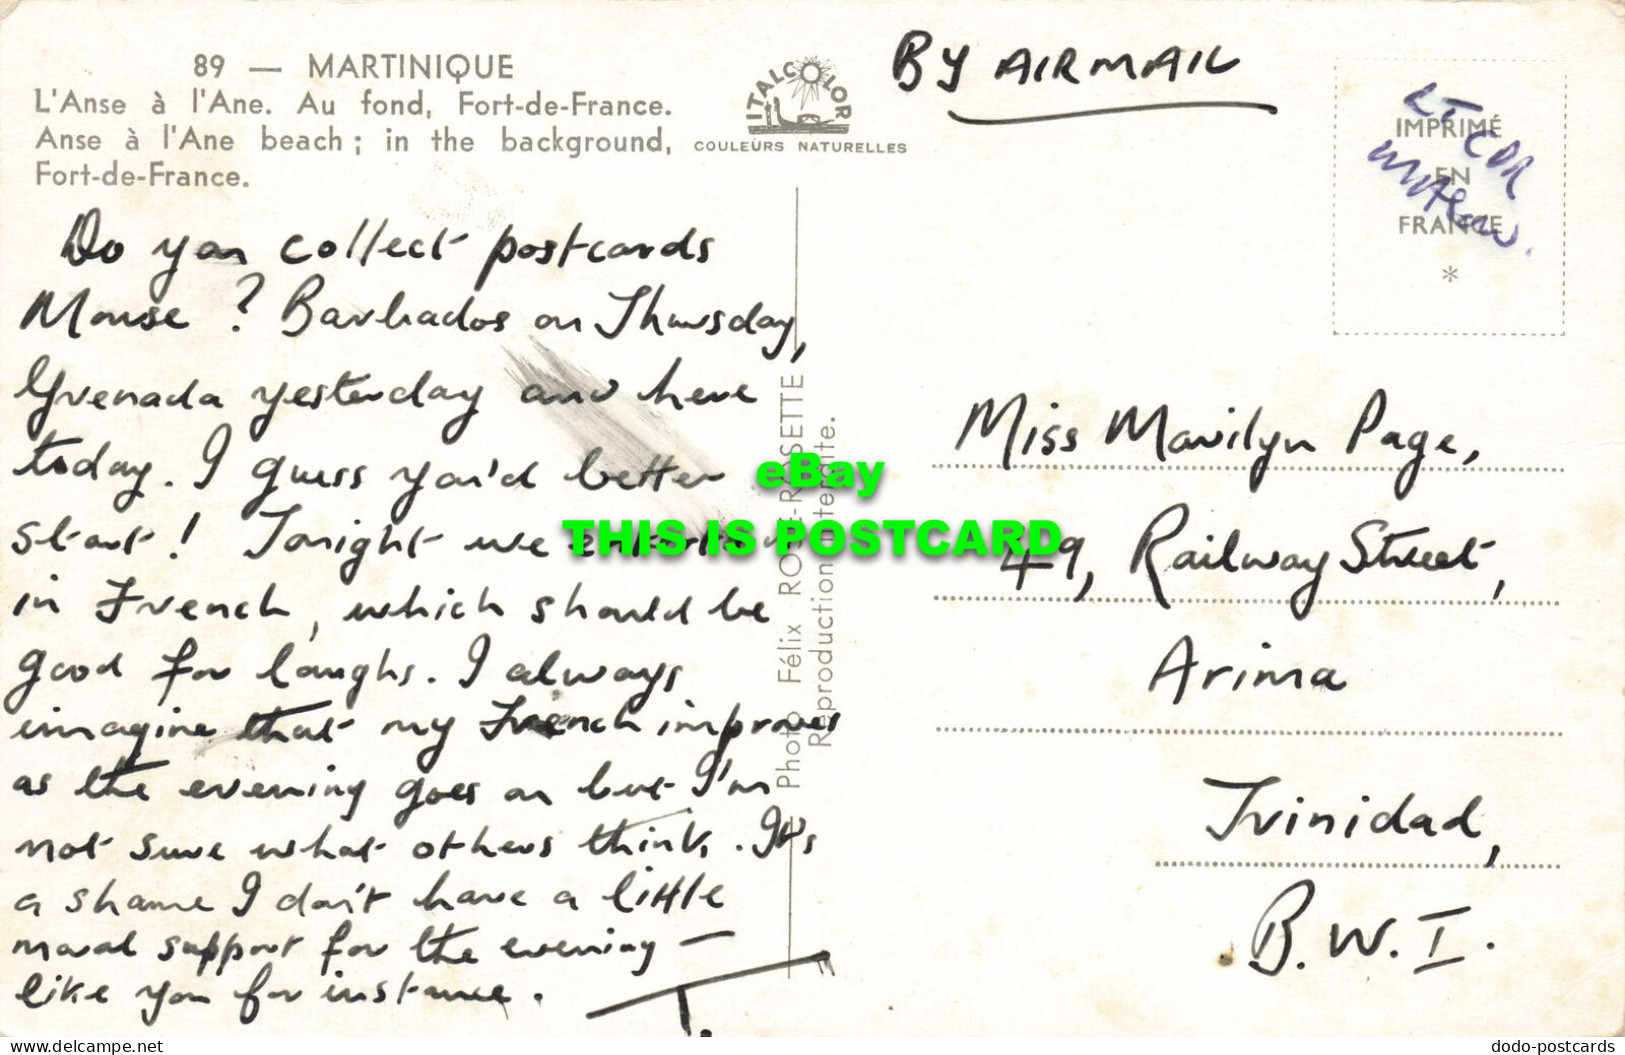 89 — MARTINIQUE
L'Anse à l'Ane. Au fond, Fort-de-France.
Anse à l'Ane beach; in the background,
Fort-de-France.
ITALCOLOR
COULEURS NATURELLES
BY AIRMAIL
IMPRIMÉ
EN
FRANCE
*
LT CDR
Do you collect postcards
Mouse? Barbados on Thursday,
Grenada yesterday and here
today. I guess you'd better
start! Tonight we
in French, which should be
good for laughs. I always
imagine that my French improves
as the evening goes on but I'm
not sure what others think. It's
a shame I don't have a little
moral support for the evening —
like you for instance.
T.
Photo Félix ROSE-ROSETTE
Reproduction interdite.
eBay
THIS IS POSTCARD
Miss Marilyn Page,
49, Railway Street,
Arima
Trinidad,
B.W.I.
www.delcampe.net
dodo-postcards